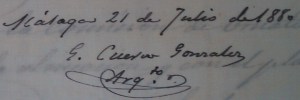 Málaga 21 de Julio de 188
G. Cuervo Gonzalez
Arq.to